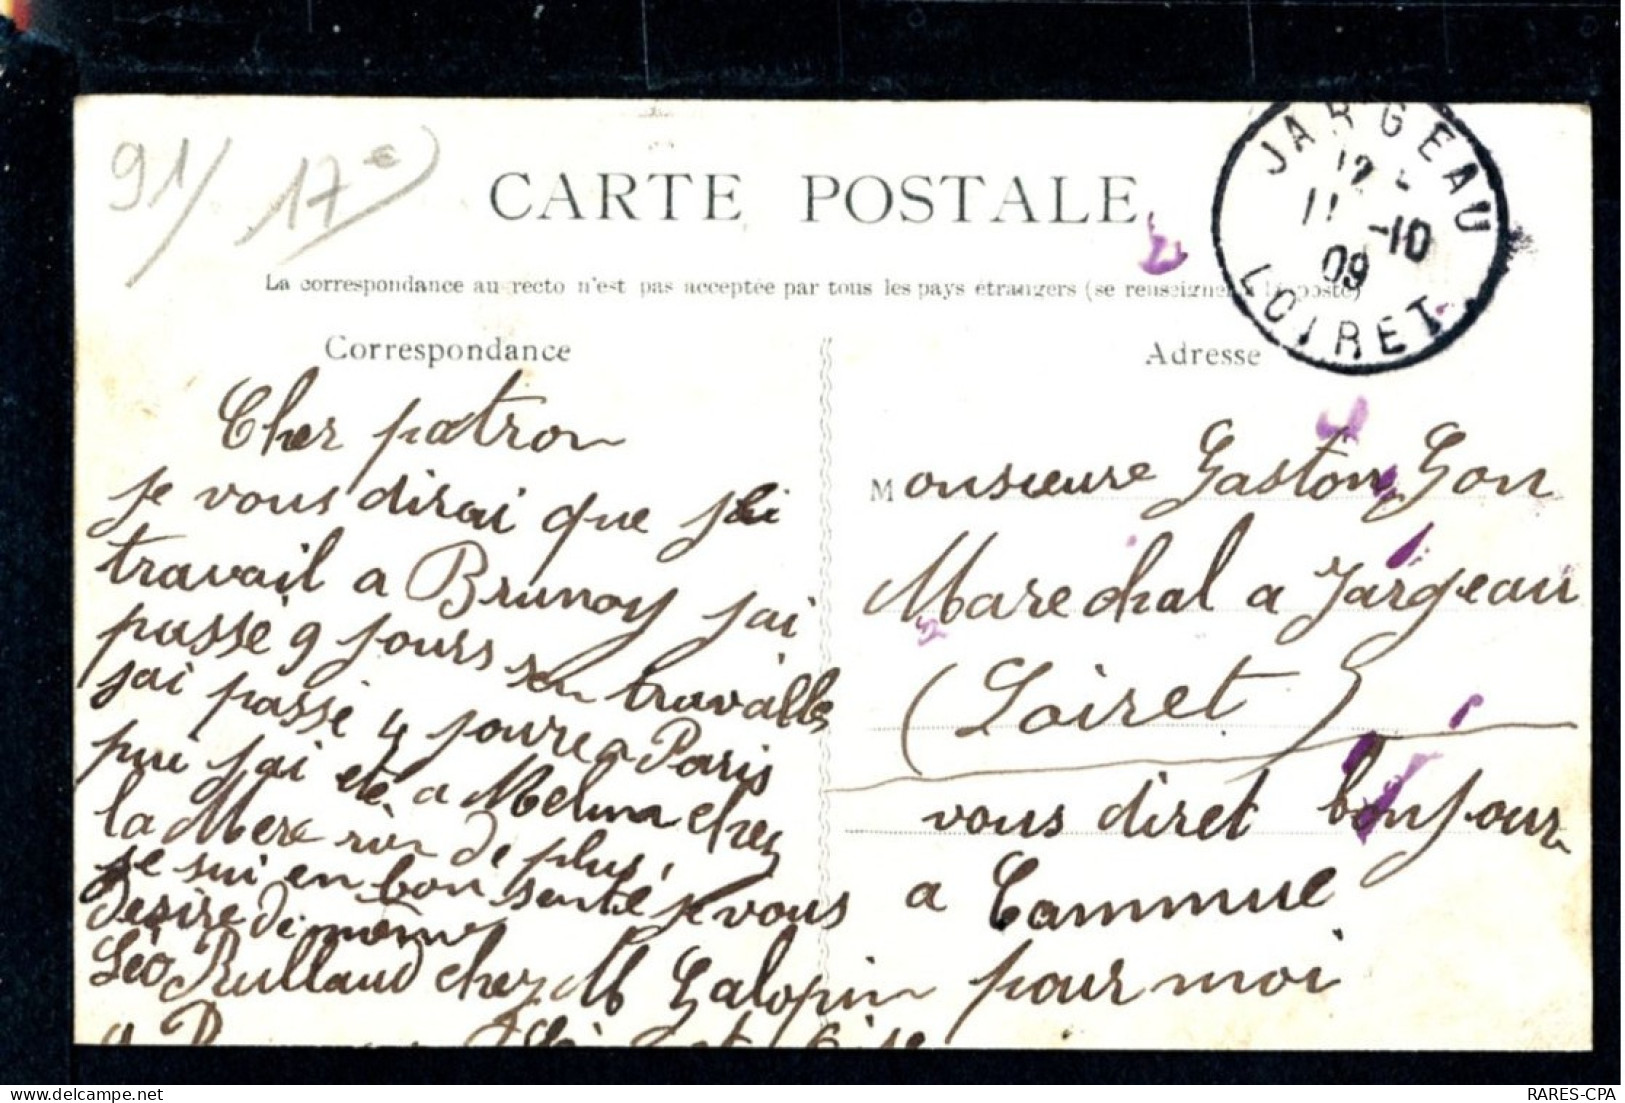 91/ 17€
CARTE POSTALE
JARGEAU
12
11 -10
09
LOIRET
La correspondance au recto n'est pas acceptée par tous les pays étrangers (se renseigner à la poste)
Correspondance
Cher patron
je vous dirai que jai
travail a Brunoy jai
passé 9 jours sen travailles
jai passé 4 joure a Paris
pui jai eté a Melun chez
la Mere rien de plus,
je sui en bon senté je vous
desire de même
Léo Rullaud chez M Galopin
a
Adresse
Monsieure Gaston Gon
Marechal a Jargeau
(Loiret)
vous diret bonjour
a Cammue
pour moi
RARES-CPA